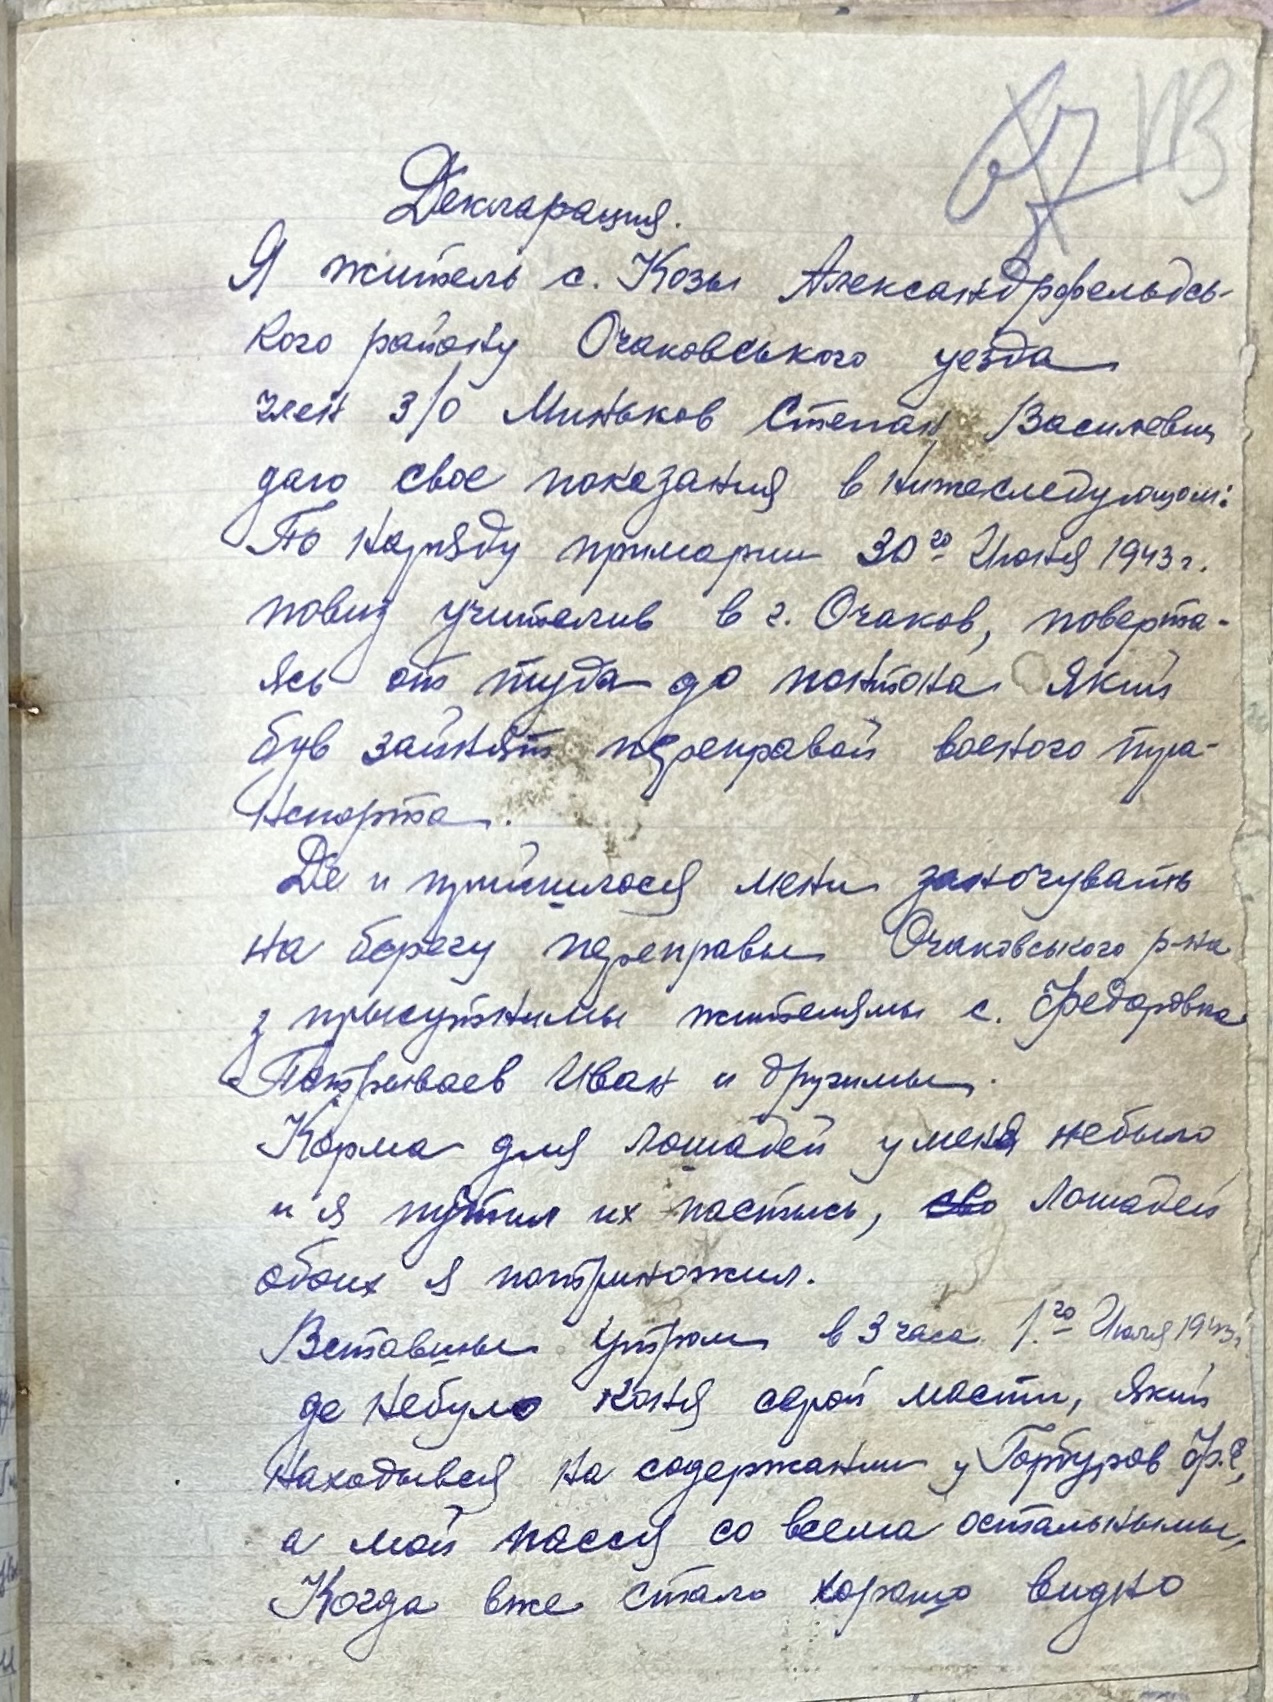 67 113
Декларация.
Я житель с. Козы Александрфельдсь-
кого району Очаковського уезда
член з/о Миньков Степан Василевич
даю свое показания в нижеследующом:
По наряду примарии 30го Июня 1943 г.
повиз учителив в г. Очаков, поверта-
ясь от туда до понтона який
був зайнят переправой военого тра-
нспорта.
Де и прийшлося мени заночувать
на берегу переправы Очаковського р-на
з присутнимы жителямы с. Федоровка
Иван и другимы.
Корма для лошадей у меня небыло
и я пустил их пастысь, лошадей
обоих я потриножил.
Вставшы утром в 3 часа 1.го Июля 1943 г.
де небуло коня серой масти, який
находывся на содержании у Горбуров
а мой пасся со всема остальнымы,
Когда вже стало хорошо видно